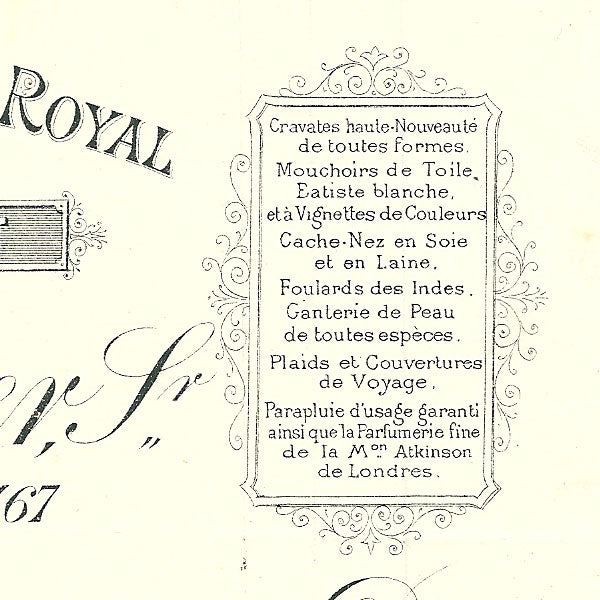 ROYAL
Cravates haute-Nouveauté
de toutes formes.
Mouchoirs de Toile,
Batiste blanche,
et à Vignettes de Couleurs
Cache-Nez en Soie
et en Laine.
Foulards des Indes.
Ganterie de Peau
de toutes espèces.
Plaids et Couvertures
de Voyage.
Parapluie d'usage garanti
ainsi que la Parfumerie fine
de la Mon Atkinson
de Londres.
r, Sr
167